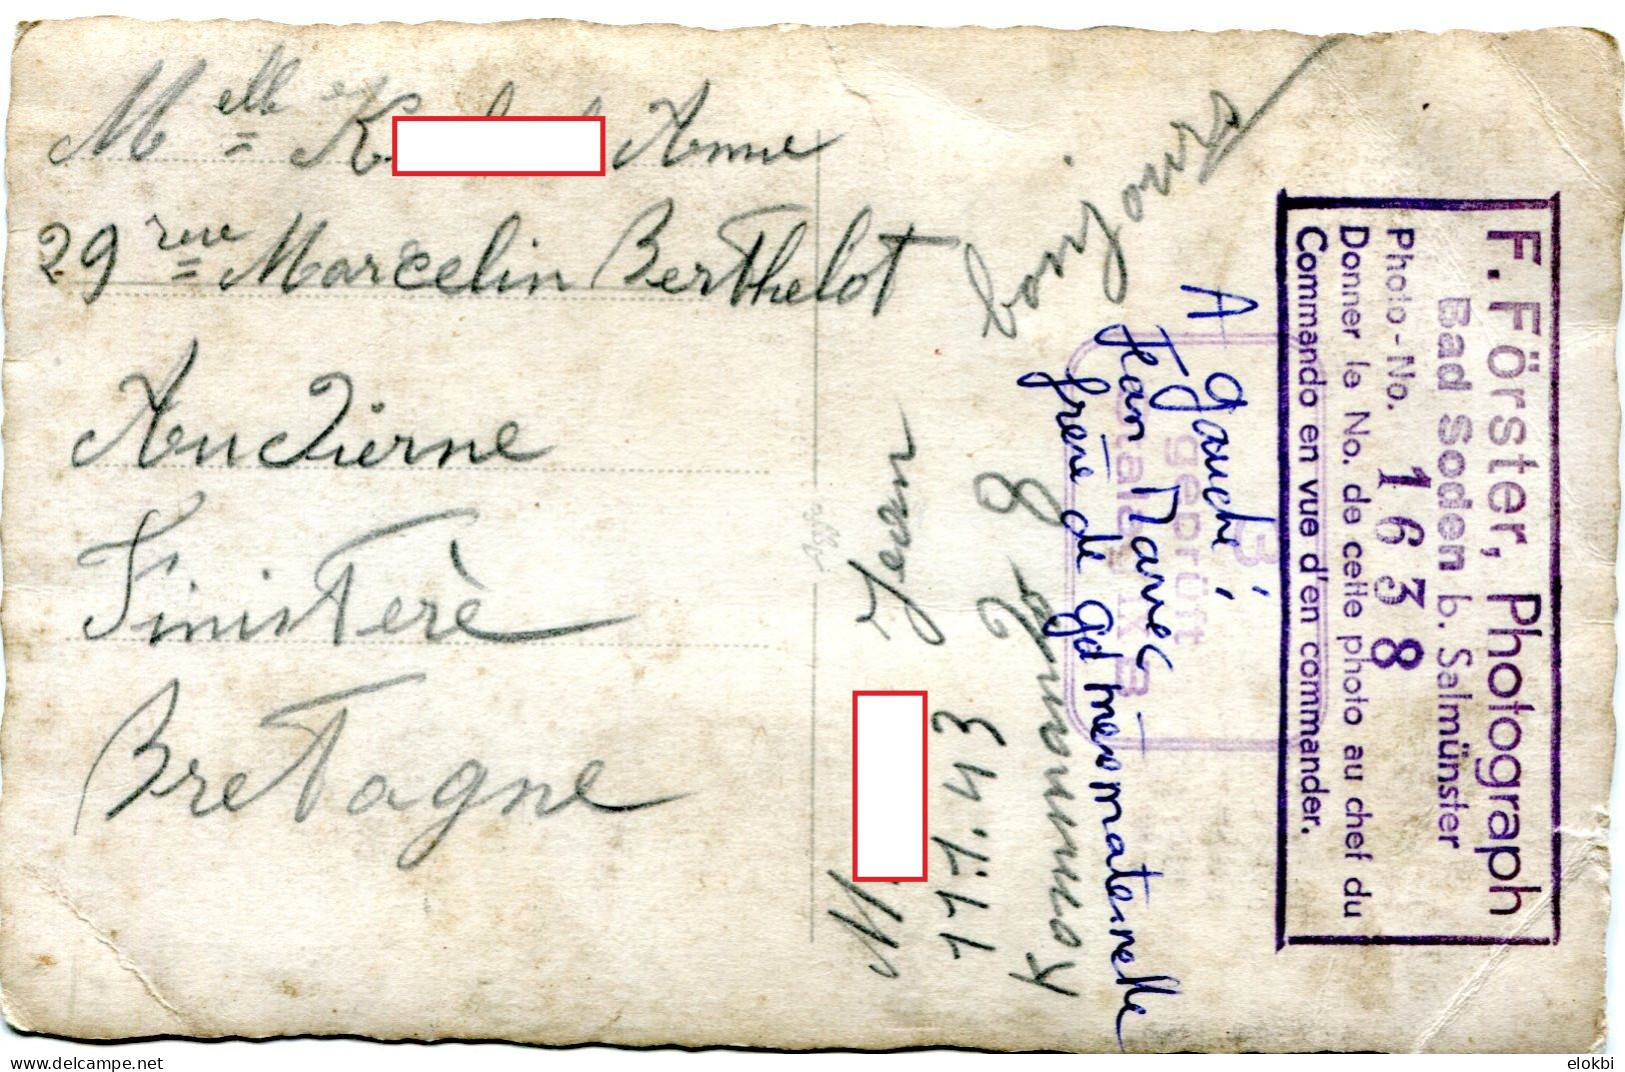 Melle K Anne
29 rue Marcelin Berthelot
Audierne
Finistère
Bretagne
bonjours
Kommando 8
11.1.43
M. Jean
A gauche,
Jean Marie
frère de gd mère maternelle
geprüft
F. Förster, Photograph
Bad Soden b. Salmünster
Photo-No. 1 6 3 8
Donner le No. de cette photo au chef du
Commando en vue d'en commander.
delcampe.net
elokbi